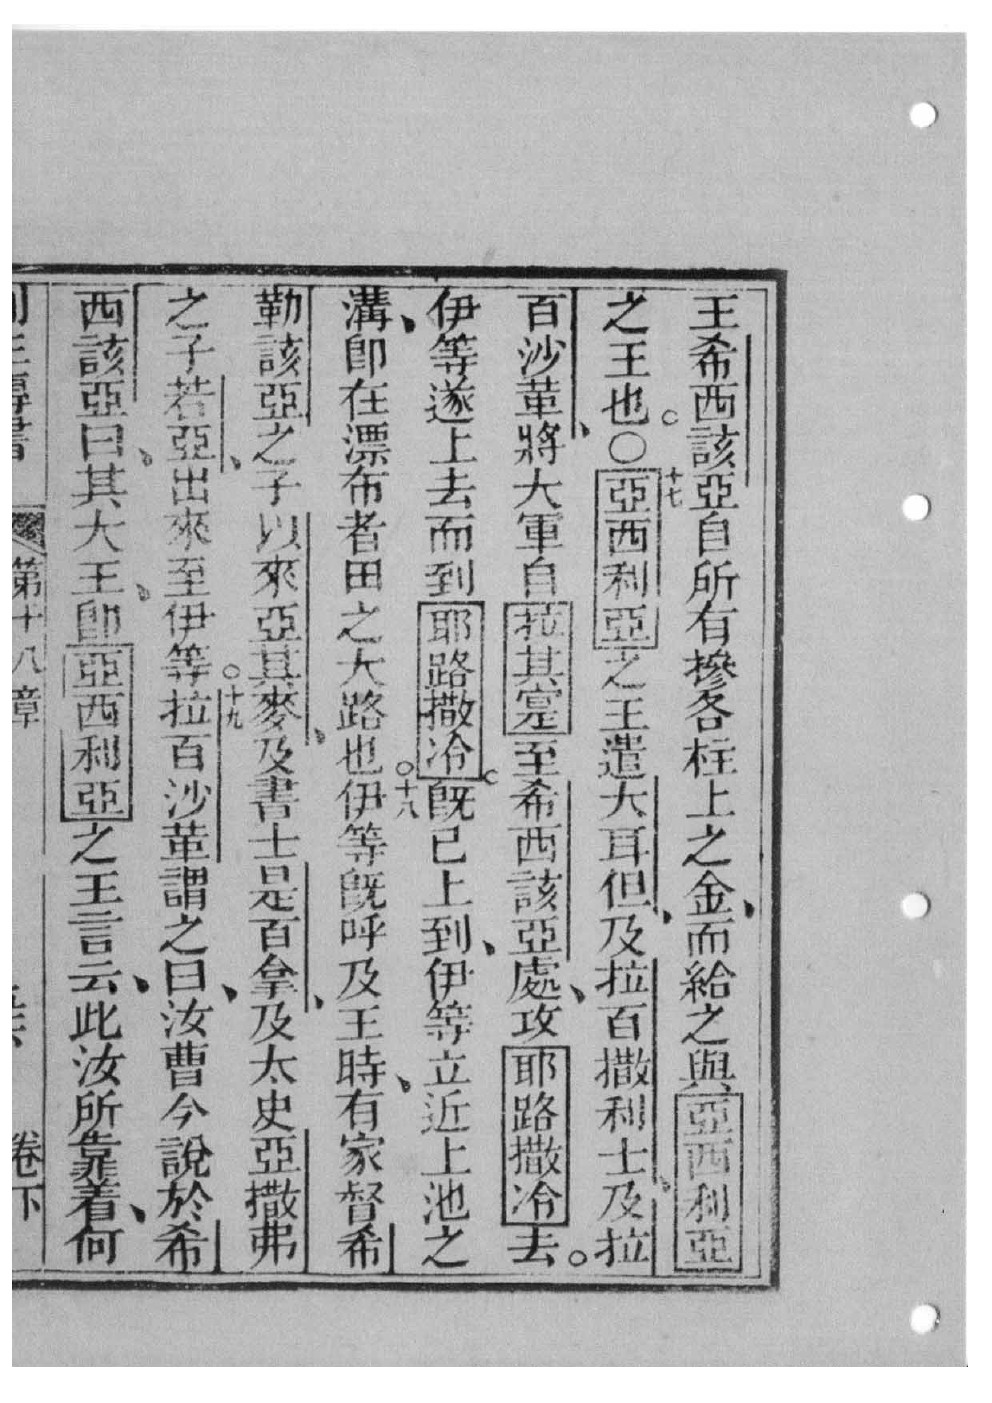 王希西該亞自所有摻各柱上之金、而給之與亞西利亞
之王也。〇十七亞西利亞之王遣大耳但、及拉百撒利士、及拉
百沙革、將大軍自拉其寔至希西該亞處、攻耶路撒冷去。
伊等遂上去而到耶路撒冷。旣已上到、伊等立近上池之
溝、卽在漂布者田之大路也。十八伊等旣呼及王時、有家督希
勒該亞之子以來亞其麥、及書士是百拿、及太史亞撒弗
之子若亞、出來至伊等。十九拉百沙革謂之曰、汝曹今說於希
西該亞曰、其大王、卽亞西利亞之王言云、此汝所靠着、何
列王傳書 第十八章 卷下